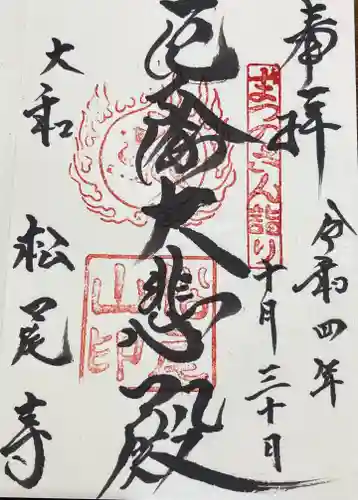 奉拝
令和四年
十月三十日
まつのさん詣り
厄除大悲殿
松尾山印
大和
松尾寺